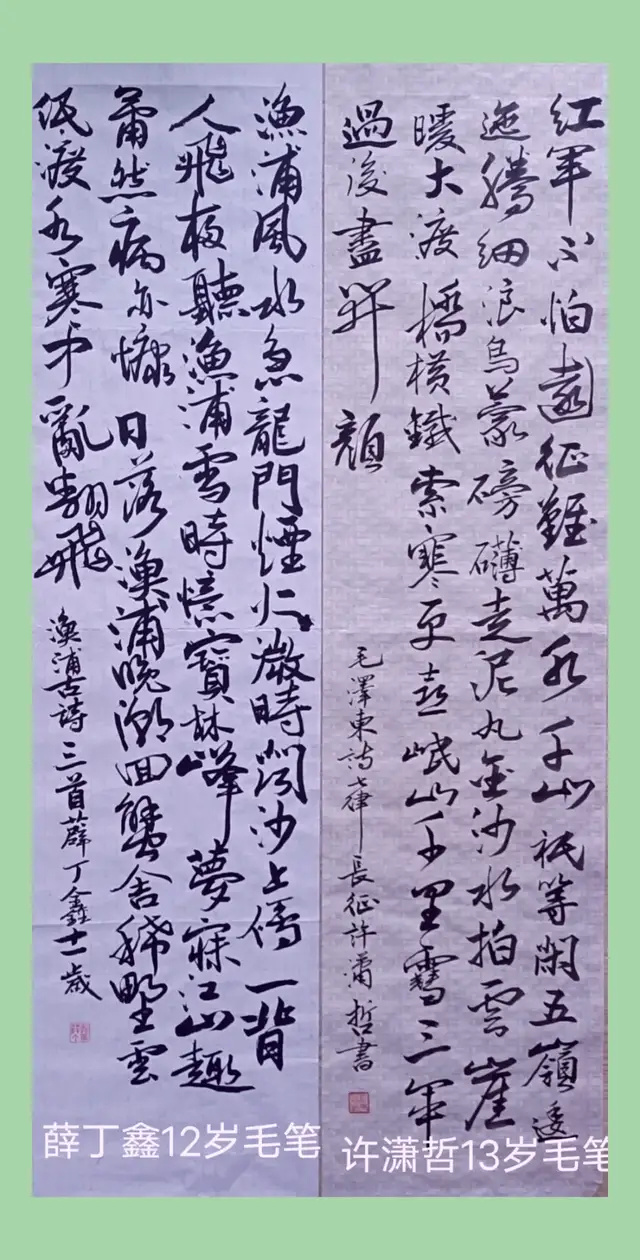 紅軍不怕遠征難萬水千山祇等閑五嶺逶
迤騰細浪烏蒙磅礴走泥丸金沙水拍雲崖
暖大渡橋橫鐵索寒更喜岷山千里雪三軍
過後盡開顏
毛澤東詩七律長征許瀟哲書
漁浦風水急龍門煙火微時聞沙上雁一背
人飛夜聽漁浦雪時憶寶林峰夢寐江山趣
蕭然病亦慵日落漁浦晚潮回蟹舍稀野雲
低渡水寒亂翻飛
漁浦古詩三首薛丁鑫十一歲
薛丁鑫12岁毛笔
许潇哲13岁毛笔